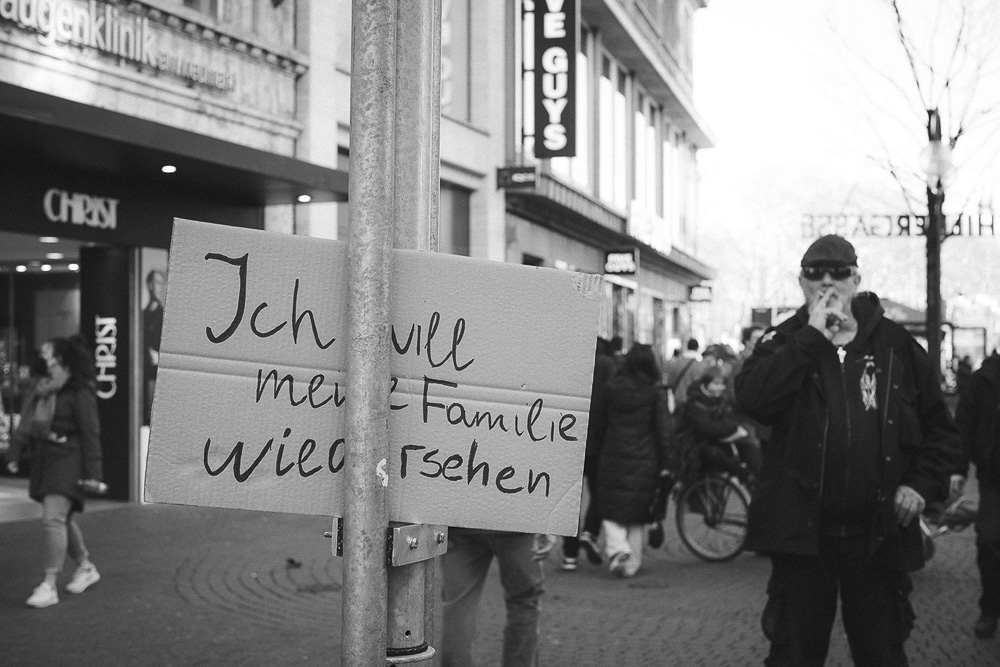 augenklinik am neumarkt
CHRIST
CHRIST
VE GUYS
HILLERGASSE
Ich will
meine Familie
wiedersehen